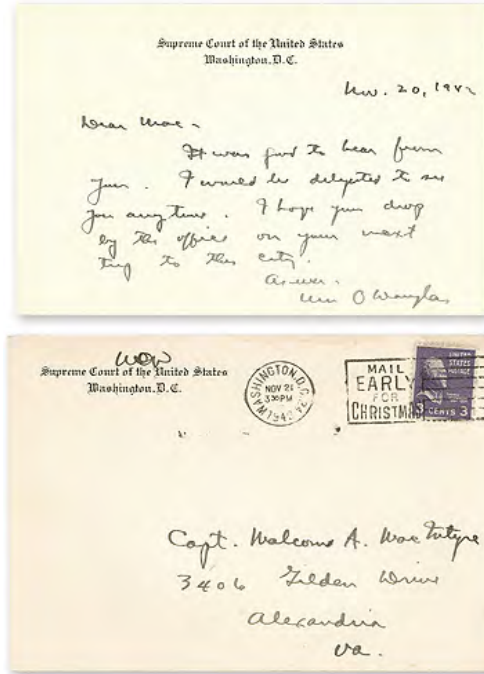 Supreme Court of the United States
Washington, D.C.
Nov. 20, 1942
Dear Mac -
It was good to hear from
you. I would be delighted to see
you any time. I hope you drop
by the office on your next
trip to this city.
As ever -
Wm O Douglas
WOD
Supreme Court of the United States
Washington, D.C.
WASHINGTON, D.C.
NOV 21
3 30 PM
1942
MAIL
EARLY
FOR
CHRISTMAS
UNITED
STATES
POSTAGE
CENTS 3
Capt. Malcolm A. MacIntyre
3406 Gilden Drive
Alexandria
Va.